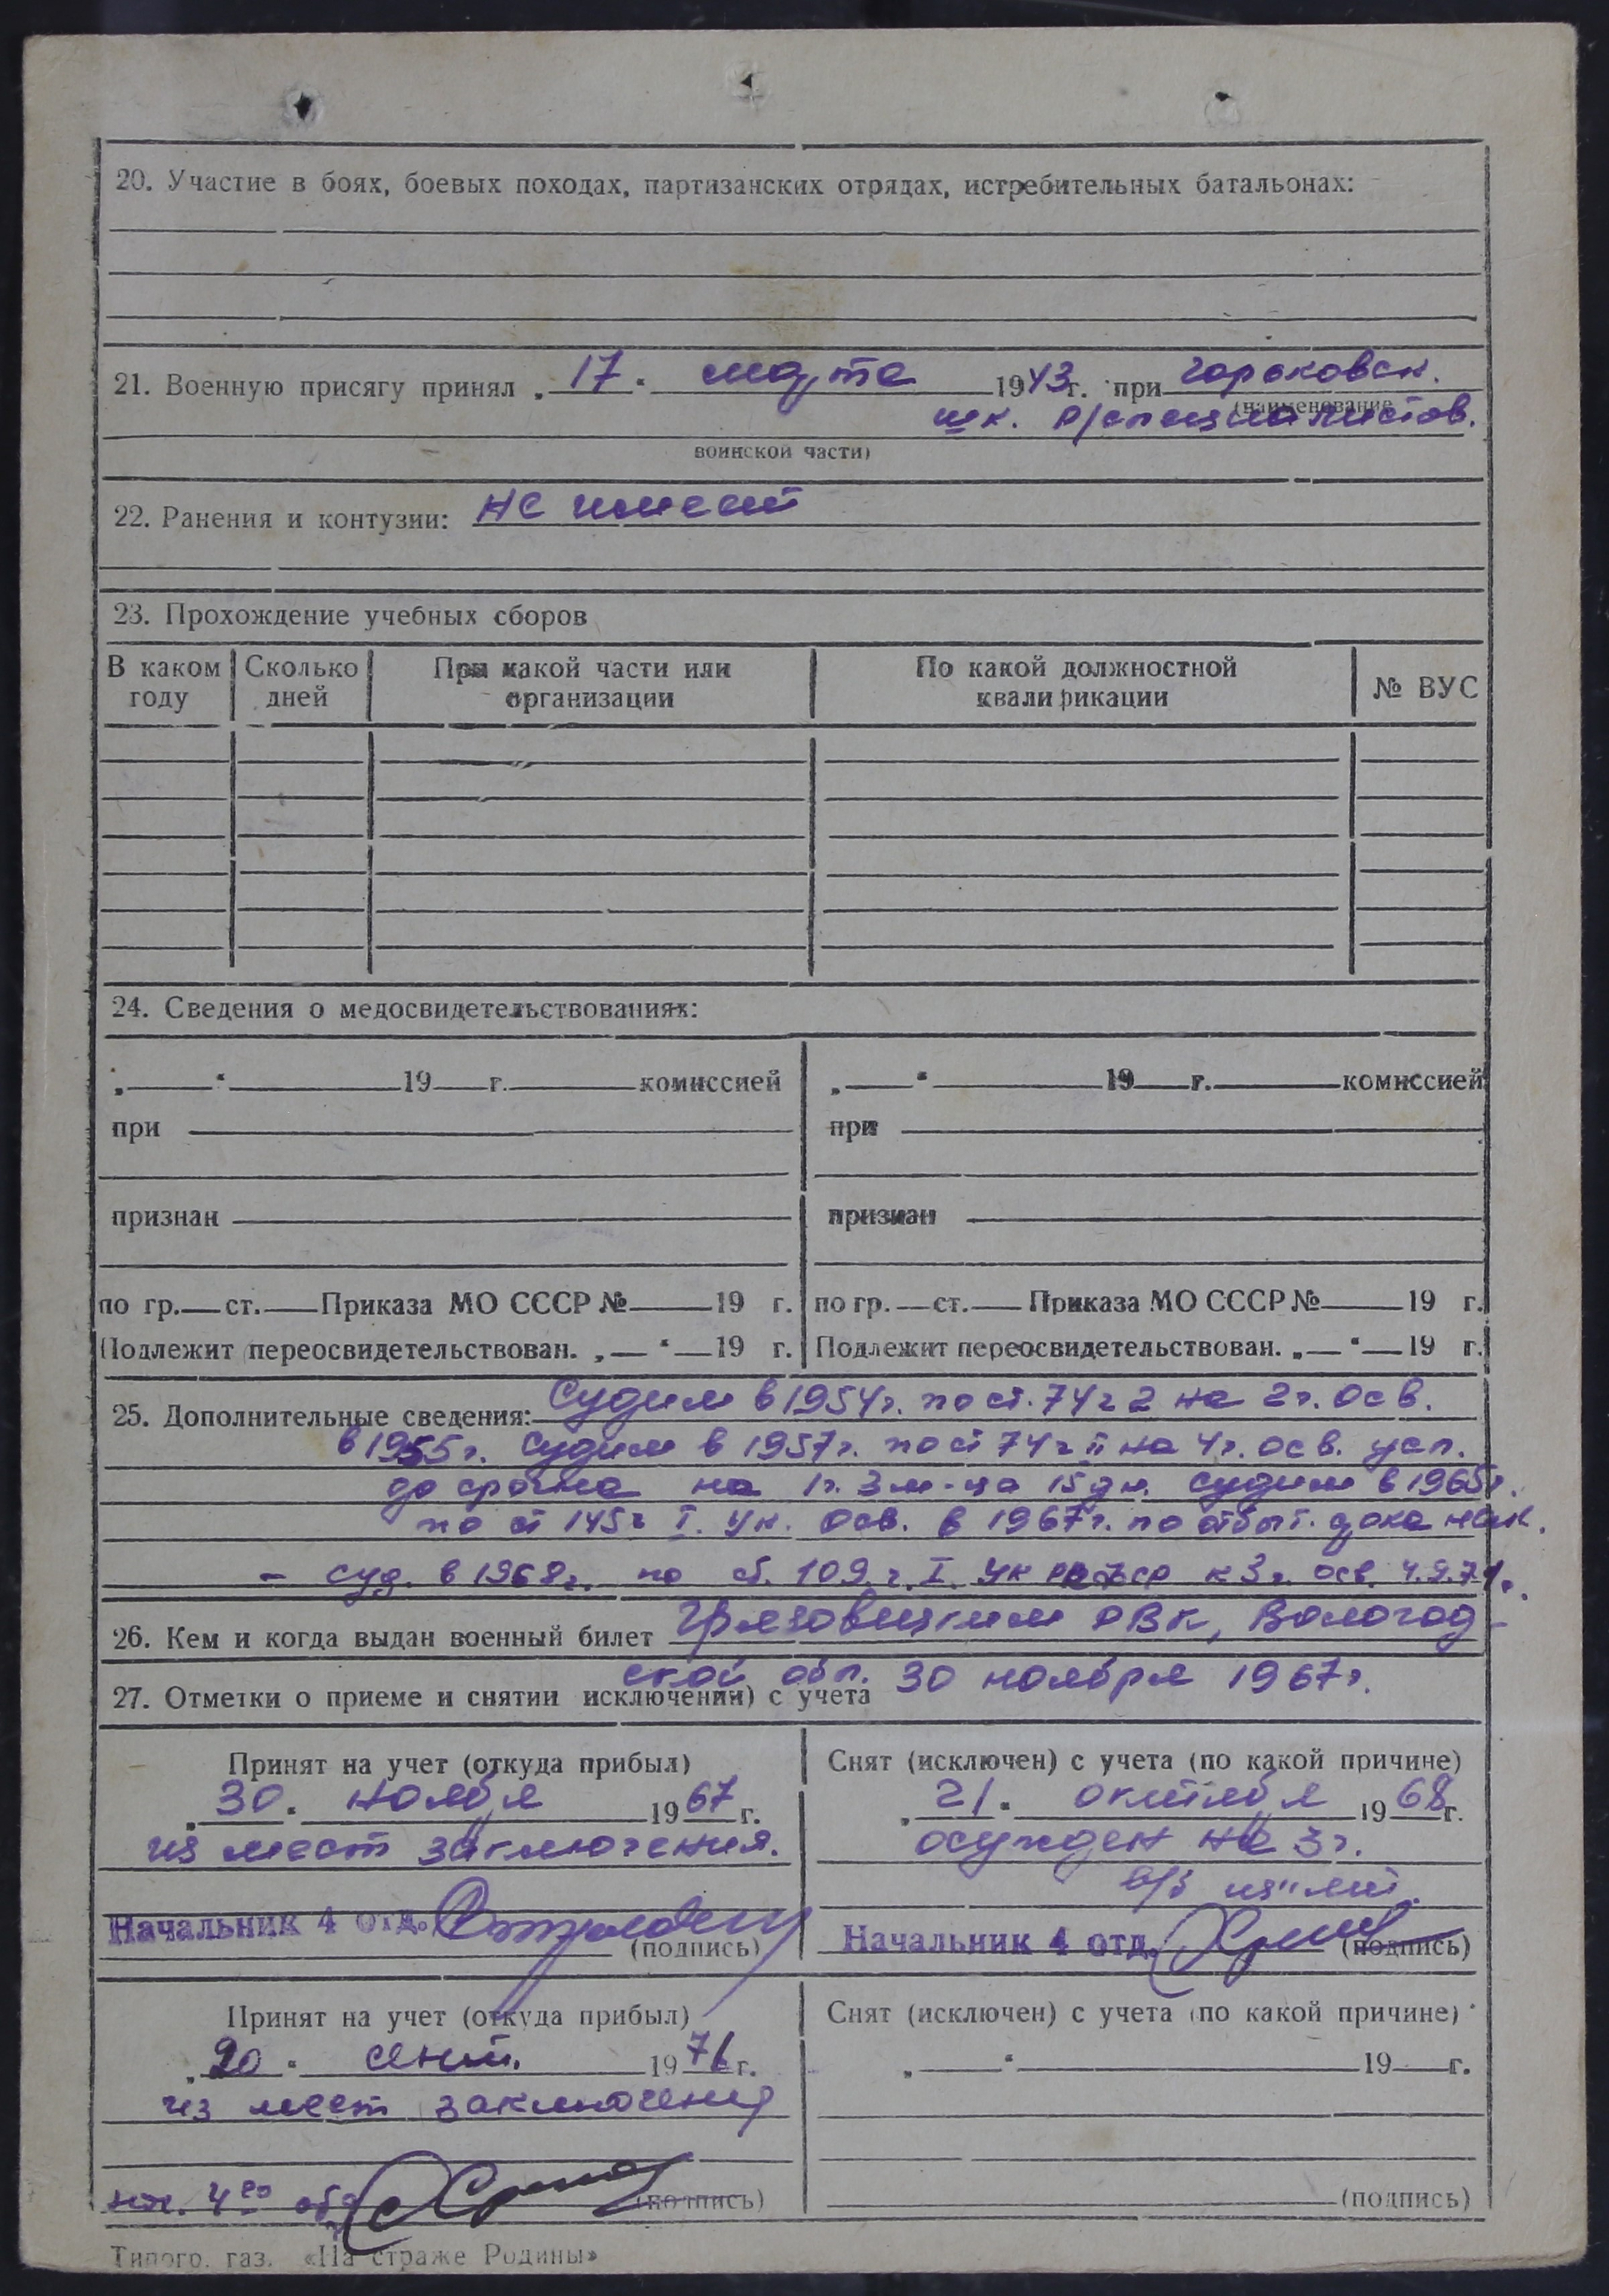 20. Участие в боях, боевых походах, партизанских отрядах, истребительных батальонах:
21. Военную присягу принял „ 17 “ марта 1943 г. при горьковск.
(наименование
шк. р/специалистов.
воинской части)
22. Ранения и контузии: не имеет
23. Прохождение учебных сборов
В каком году Сколько дней При какой части или организации По какой должностной квалификации № ВУС
24. Сведения о медосвидетельствованиях:
„ “ 19 г. комиссией „ “ 19 г. комиссией
при при
признан признан
по гр. ст. Приказа МО СССР № 19 г. по гр. ст. Приказа МО СССР № 19 г.
Подлежит переосвидетельствован. „ “ 19 г. Подлежит переосвидетельствован. „ “ 19 г.
25. Дополнительные сведения: Судим в 1954г. по ст. 74 ч 2 на 2 г. осв.
в 1955г. судим в 1957г. по ст 74 ч II на 4 г. осв. усл.
досрочно на 1 г. 3 м-ца 15 дн. судим в 1965г.
по ст 145 ч I. Ук. осв. в 1967г. по отбыт.
- суд. в 1968г. по ст. 109 ч. I. УК к 3 г. осв. 4.9.71г.
26. Кем и когда выдан военный билет Грязовецким РВК, Вологод-
ской обл. 30 ноября 1967г.
27. Отметки о приеме и снятии исключении) с учета
Принят на учет (откуда прибыл) Снят (исключен) с учета (по какой причине)
„ 30 “ ноября 1967 г. „ 21 “ октября 1968 г.
из мест заключения. осужден на 3 г.
Начальник 4 отд. (подпись) Начальник 4 отд. (подпись)
Принят на учет (откуда прибыл) Снят (исключен) с учета (по какой причине)
„ 20 “ сент. 1971 г. „ “ 19 г.
из мест заключения
нач. 4го отд (подпись) (подпись)
Типогр. газ. «На страже Родины»